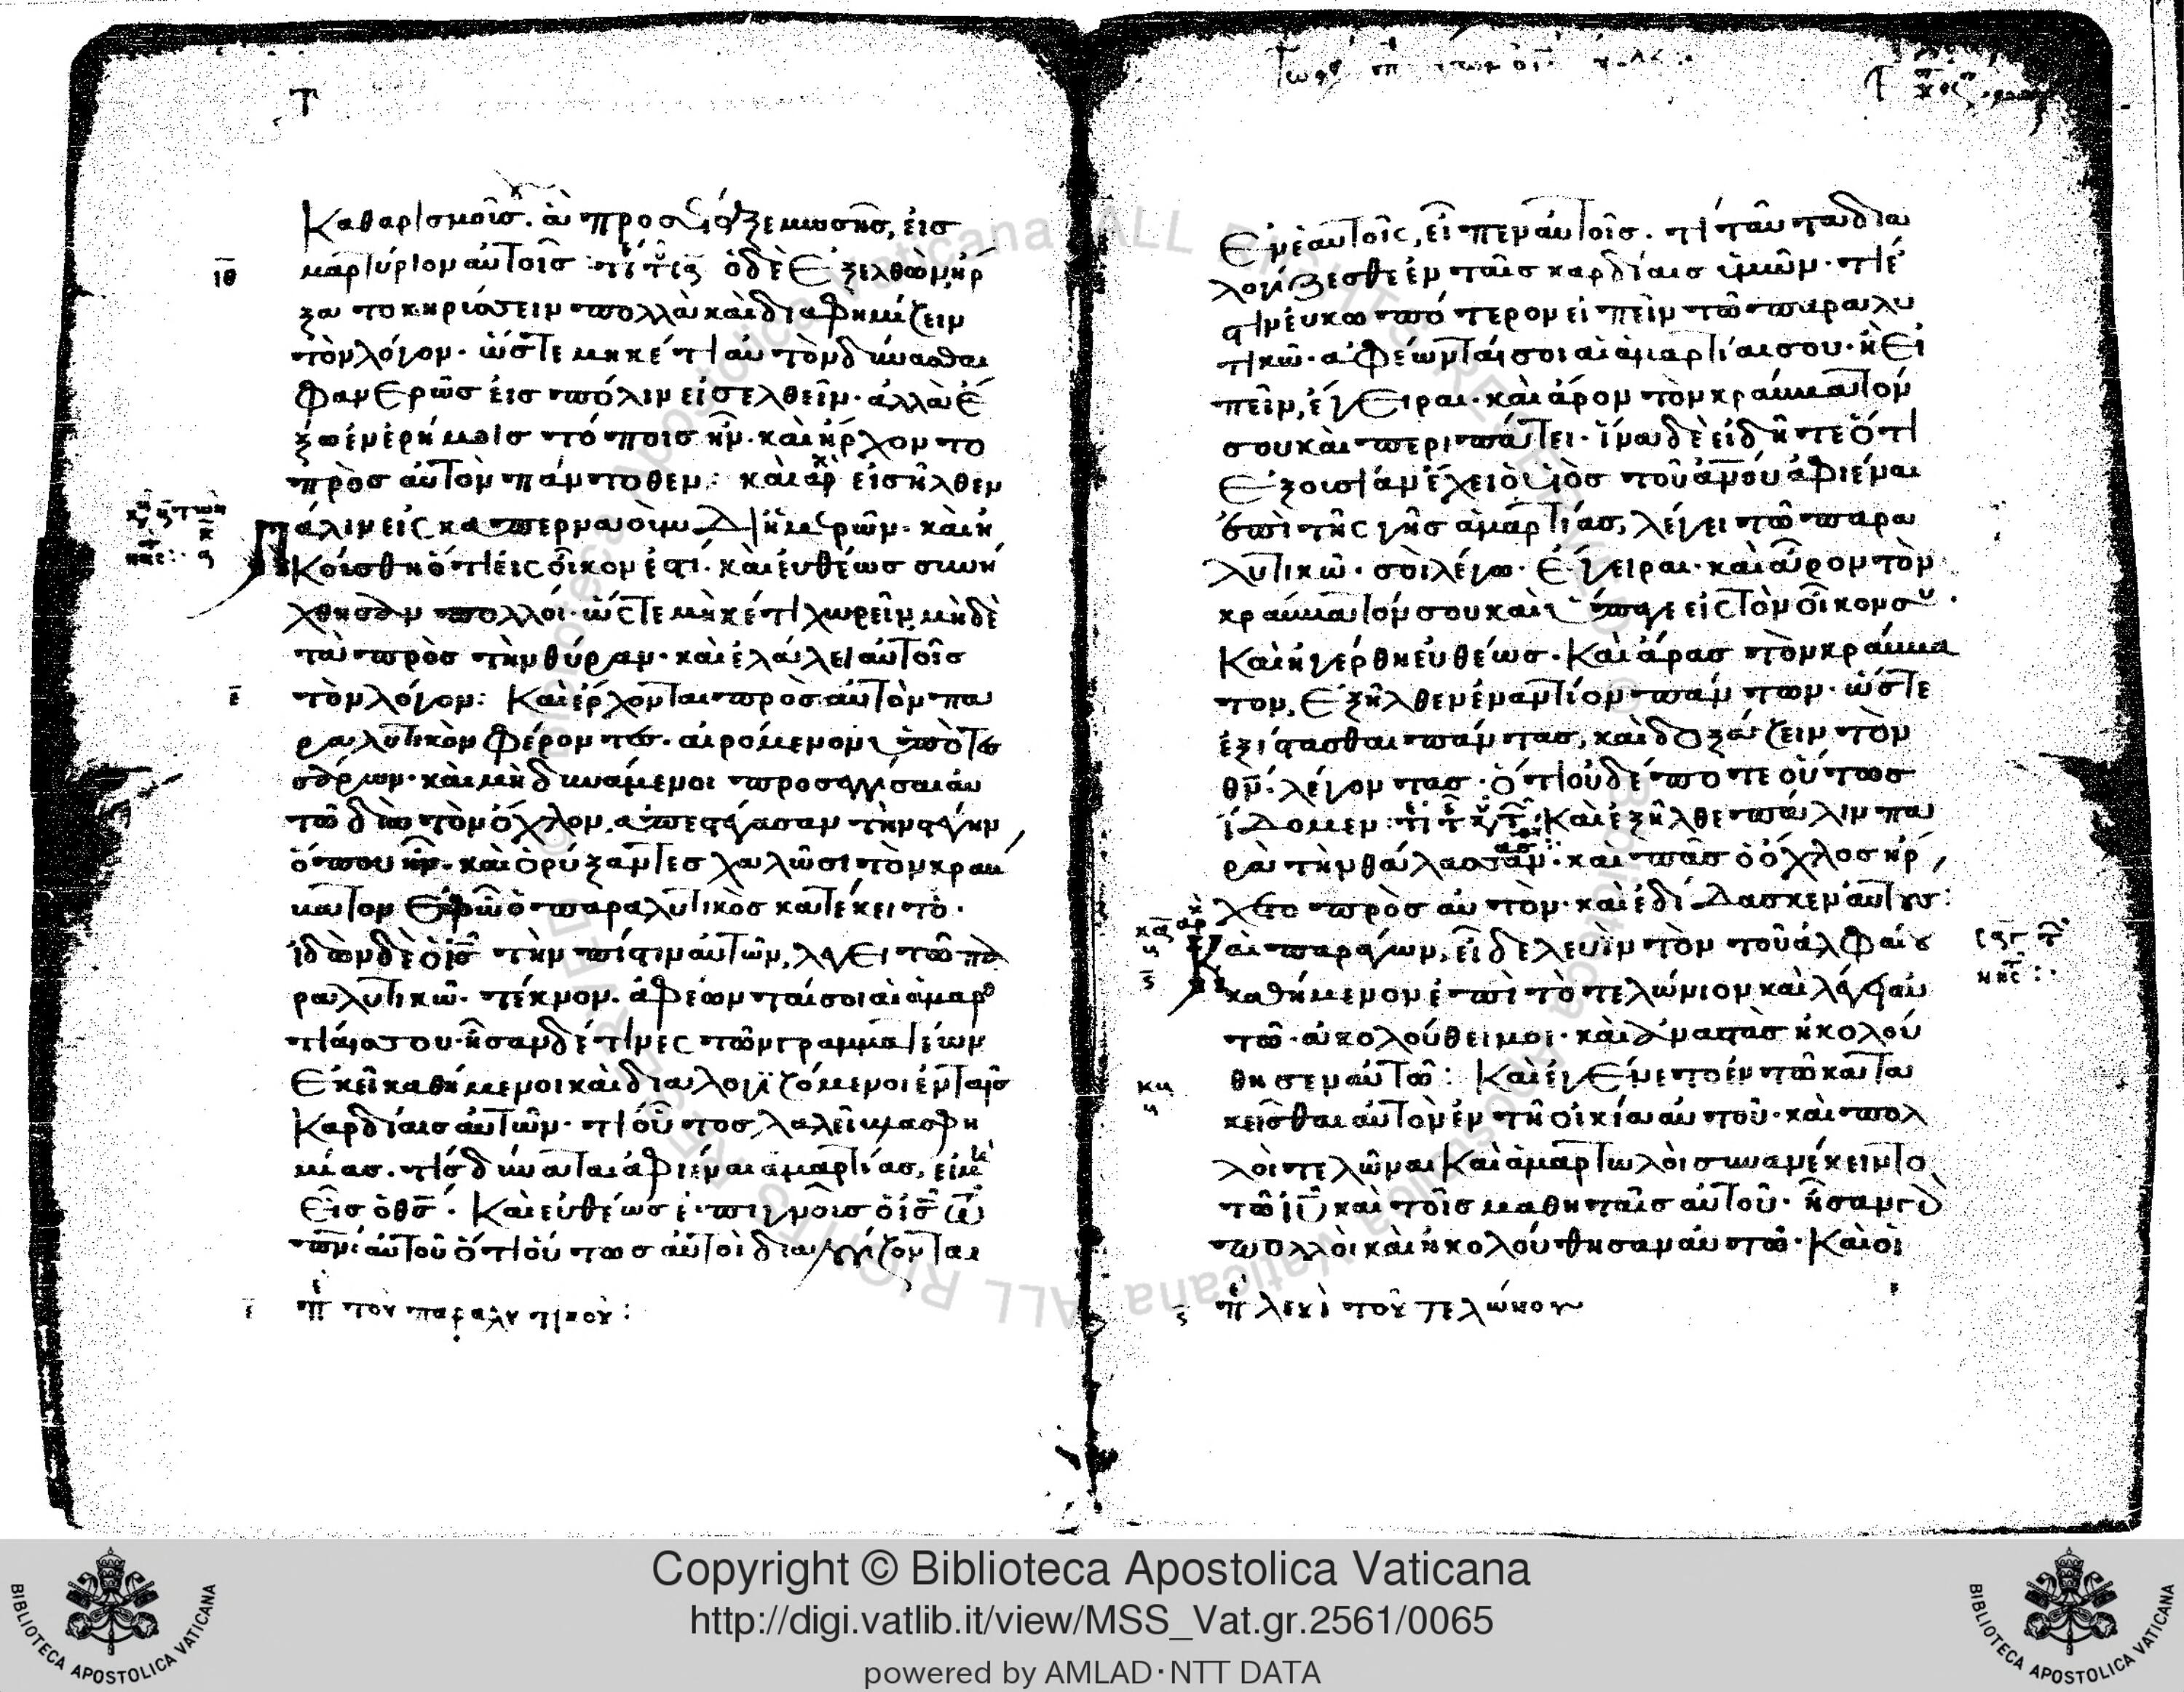 καθαρισμοῖσ. ἃ προσέταξε μωσῆσ, εἰσ
ιθ μαρτύριον αὐτοῖσ ὁ δὲ ἐξελθὼν ἤρ
ξατο κηρύσσειν πολλὰ καὶ διαφημίζειν
τὸν λόγον· ὥστε μηκέτι αὐτὸν δύνασθαι
φανερῶσ εἰσ πόλιν εἰσελθεῖν· ἀλλὰ ἔ
ξω ἐν ἐρήμοισ τόποισ ἦν. καὶ ἤρχοντο
πρὸσ αὐτὸν πάντοθεν: καὶ εἰσῆλθεν
πάλιν εἰς καπερναοὺμ δι ἡμερῶν· καὶ ἠ
κούσθη ὅτι εἰς οἶκον ἐστί. καὶ εὐθέωσ συνή
χθησαν πολλοί· ὥστε μηκέτι χωρεῖν μηδὲ
τὰ πρὸσ τὴν θύραν· καὶ ἐλάλει αὐτοῖσ
ε τὸν λόγον: Καὶ ἔρχονται πρὸσ αὐτὸν πα
ραλυτικὸν φέροντεσ. αἰρόμενον ὑπὸ τεσ
σάρων· καὶ μὴ δυνάμενοι προσεγγίσαι αὐ
τῶ διὰ τὸν ὄχλον, ἀπεστέγασαν τὴν στέγην,
ὅπου ἦν. καὶ ὀρύξαντεσ χαλῶσι τὸν κράμ
ματον ἐφ ᾧ ὁ παραλυτικὸσ κατέκειτο·
ἰδὼν δὲ ὁ ισ τὴν πίστιν αὐτῶν, λέγει τῶ πα
ραλυτικῶ· τέκνον. ἀφέωνταί σοι αἱ ἁμαρ
τίαι σου· ἦσαν δέ τινες τῶν γραμματέων
ἐκεῖ καθήμενοι καὶ διαλογϊζόμενοι ἐν ταῖσ
καρδίαισ αὐτῶν· τί οὗτοσ λαλεῖ βλασφη
μίασ. τίσ δύναται ἀφιέναι ἁμαρτίασ, εἰ μὴ
εἷσ ὁ θσ. Καὶ εὐθέωσ ἐπιγνοὺσ ὁ ισ τῶ
πνι αὐτοῦ ὅτι οὕτωσ αὐτοὶ διαλογίζονται
ε π τοῦ παραλυτικοῦ:
ἐν ἑαυτοῖς, εἶπεν αὐτοῖσ. τί ταῦτα δια
λογίζεσθε ἐν ταῖσ καρδίαισ ὑμῶν· τί ἐ
στιν εὐκοπώτερον εἰπεῖν τῶ παραλυ
τικῶ· ἀφέωνταί σοι αἱ ἁμαρτίαι σου· ἢ εἰ
πεῖν, ἔγειραι· καὶ ἆρον τὸν κράμματόν
σου καὶ περιπάτει· ἵνα δὲ εἰδῆτε ὅτι
ἐξουσίαν ἔχει ὁ υἱὸσ τοῦ ανου ἀφιέναι
ἐπὶ τῆς γῆσ ἁμαρτίασ, λέγει τῶ παρα
λυτικῶ· σοὶ λέγω· ἔγειραι· καὶ ἆρον τὸν
κράμματόν σου καὶ ὕπαγε εἰς τὸν οἶκον σου.
Καὶ ἠγέρθη εὐθέωσ. Καὶ ἄρασ τὸν κράμμα
τον, ἐξῆλθεν ἐναντίον πάντων· ὥστε
ἐξίστασθαι πάντασ, καὶ δοξάζειν τὸν
θν. λέγοντασ· ὅτι οὐδέποτε οὕτωσ
ἴδομεν: Καὶ ἐξῆλθε πάλιν πα
ρὰ τὴν θάλασσαν· καὶ πᾶσ ὁ ὄχλοσ ἤρ
χετο πρὸσ αὐτὸν· καὶ ἐδίδασκεν αὐτούσ:
Καὶ παράγων, εἶδε λευὶν τὸν τοῦ ἀλφαίου
καθήμενον ἐπὶ τὸ τελώνιον καὶ λέγει αὐ
τῶ· ἀκολούθει μοι· καὶ ἀναστὰσ ἠκολού
θησεν αὐτῶ: Καὶ ἐγένετο ἐν τῶ κατα
κεῖσθαι αὐτὸν ἐν τῆ οἰκία αὐτοῦ· καὶ πολ
λοὶ τελῶναι καὶ ἁμαρτωλοὶ συνανέκειντο
τῶ ιυ καὶ τοῖσ μαθηταῖσ αὐτοῦ· ἦσαν γὰρ
πολλοὶ καὶ ἠκολούθησαν αὐτῶ· Καὶ οἱ
ϛ π λευὶ τοῦ τελώνου
Copyright © Biblioteca Apostolica Vaticana
http://digi.vatlib.it/view/MSS_Vat.gr.2561/0065
powered by AMLAD·NTT DATA
BIBLIOTECA APOSTOLICA VATICANA
BIBLIOTECA APOSTOLICA VATICANA